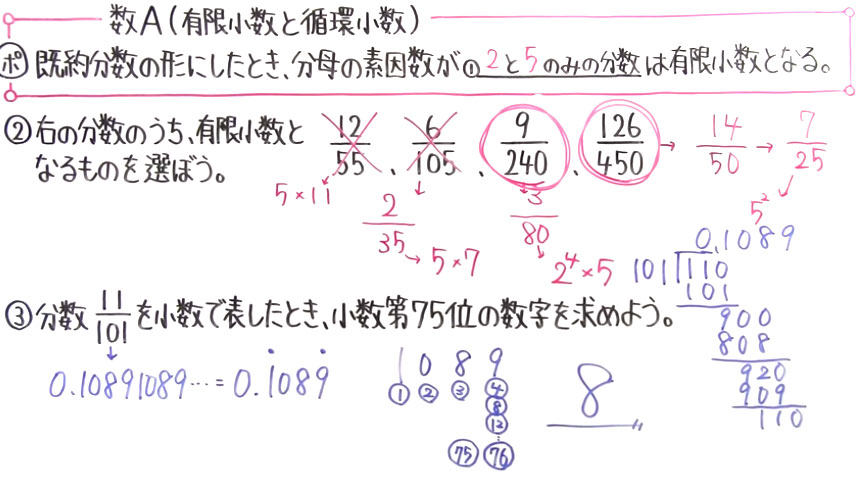 数A(有限小数と循環小数)
ポ 既約分数の形にしたとき、分母の素因数が① 2と5のみの分数は有限小数となる。
② 右の分数のうち、有限小数と 12/55、6/105、9/240、126/450 → 14/50 → 7/25
なるものを選ぼう。
5×11 2/35 → 5×7 3/80 2⁴×5 5²
③ 分数 11/101 を小数で表したとき、小数第75位の数字を求めよう。
0.10891089… = 0.1̇089̇
1 0 8 9
① ② ③ ④
⑧
⑫
⋮
75 76
8
0.1089
101 110
101
900
808
920
909
110